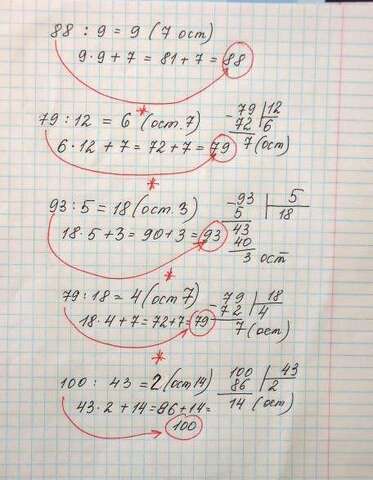 88 : 9 = 9 (7 ост)
9·9 + 7 = 81 + 7 = 88
*
79 : 12 = 6 (ост. 7)
6·12 + 7 = 72 + 7 = 79
- 79 | 12
72 | 6
7 (ост)
*
93 : 5 = 18 (ост. 3)
18·5 + 3 = 90 + 3 = 93
- 93 | 5
5 | 18
43
40
3 ост
*
79 : 18 = 4 (ост 7)
18·4 + 7 = 72 + 7 = 79
- 79 | 18
72 | 4
7 (ост)
*
100 : 43 = 2 (ост 14)
43·2 + 14 = 86 + 14 =
100
100 | 43
86 | 2
14 (ост)